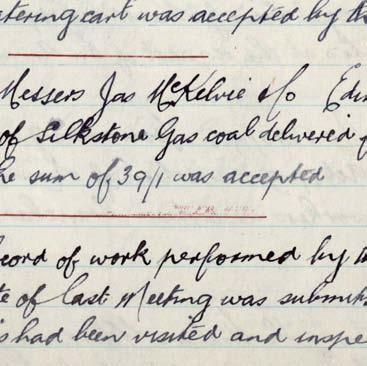 atering cart was accepted by th
Messers Jas McKelvie &/o Edin
of Silkstone Gas coal delivered f
he sum of 39/1 was accepted
ecord of work performed by th
te of last Meeting was submit
s had been visited and inspe